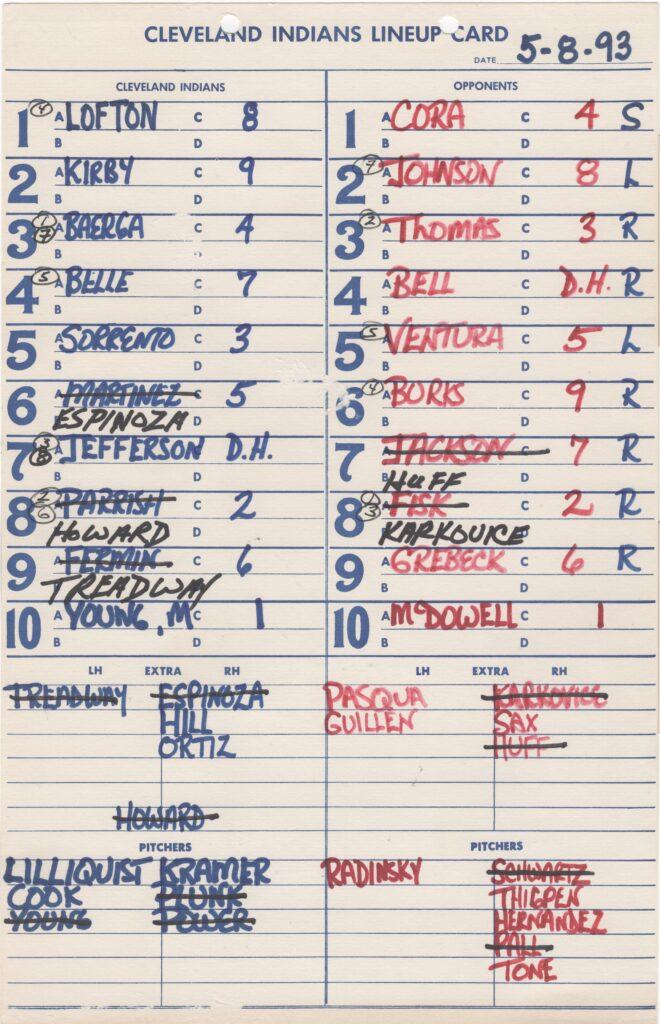 CLEVELAND INDIANS LINEUP CARD
DATE 5-8-93
CLEVELAND INDIANS
1 4 A LOFTON C 8
B D
2 A KIRBY C 9
B D
3 1 7 A BAERGA C 4
B D
4 5 A BELLE C 7
B D
5 A SORRENTO C 3
B D
6 A MARTINEZ C 5
ESPINOZA D
7 3 8 A JEFFERSON C D.H.
B D
8 2 6 A PARRISH C 2
HOWARD D
9 A FERMIN C 6
TREADWAY
10 A YOUNG, M C 1
B D
OPPONENTS
1 A CORA C 4 S
B D
2 7 A JOHNSON C 8 L
B D
3 2 A THOMAS C 3 R
B D
4 A BELL C D.H. R
B D
5 5 A VENTURA C 5 L
B D
6 4 A BURKS C 9 R
B D
7 A JACKSON C 7 R
HUFF D
8 1 3 A FISK C 2 R
KARKOVICE D
9 A GREBECK C 6 R
B D
10 A McDOWELL C 1
B D
LH EXTRA RH
TREADWAY ESPINOZA
HILL
ORTIZ
HOWARD
PITCHERS
LILLIQUIST KRAMER
COOK PLUNK
YOUNG POWER
LH EXTRA RH
PASQUA KARKOVICE
GUILLEN SAX
HUFF
PITCHERS
RADINSKY SCHWARTZ
THIGPEN
HERNANDEZ
PALL
TONE